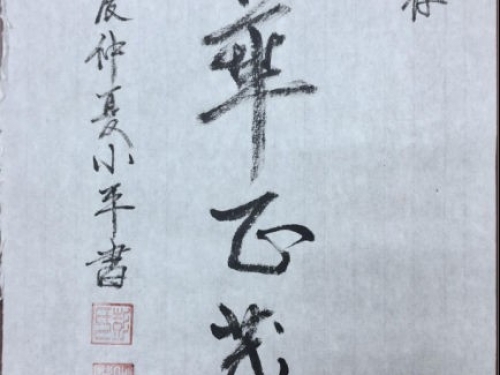 存
華正茂
辰仲夏小平書